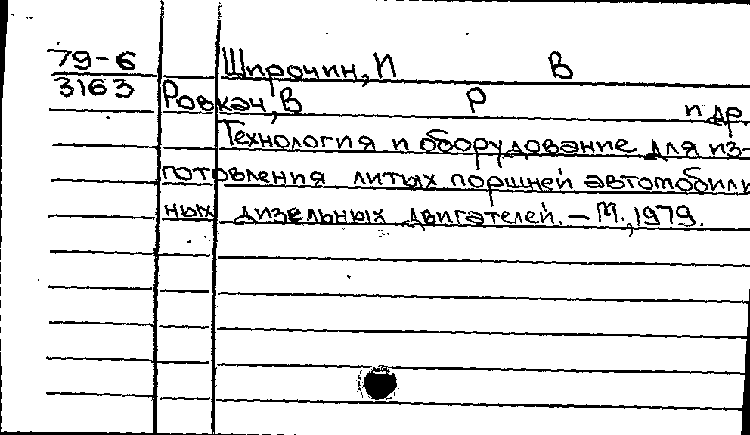 79-6 Широчин, И В
3163 Ровкач, В Р и др.
Технология и оборудование для из-
готовления литых поршней автомобиль
ных дизельных двигателей. – М., 1979.